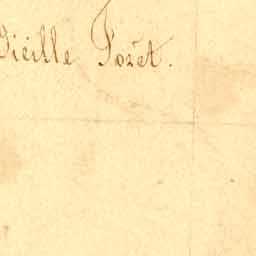 Vieille Foret.